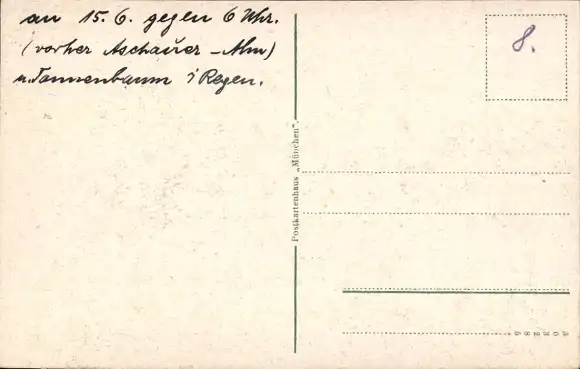 an 15. 6. gegen 6 Uhr.
(vorher Aschauer - Alm)
u. Tannenbaum i Regen.
8.
Postkartenhaus „München".